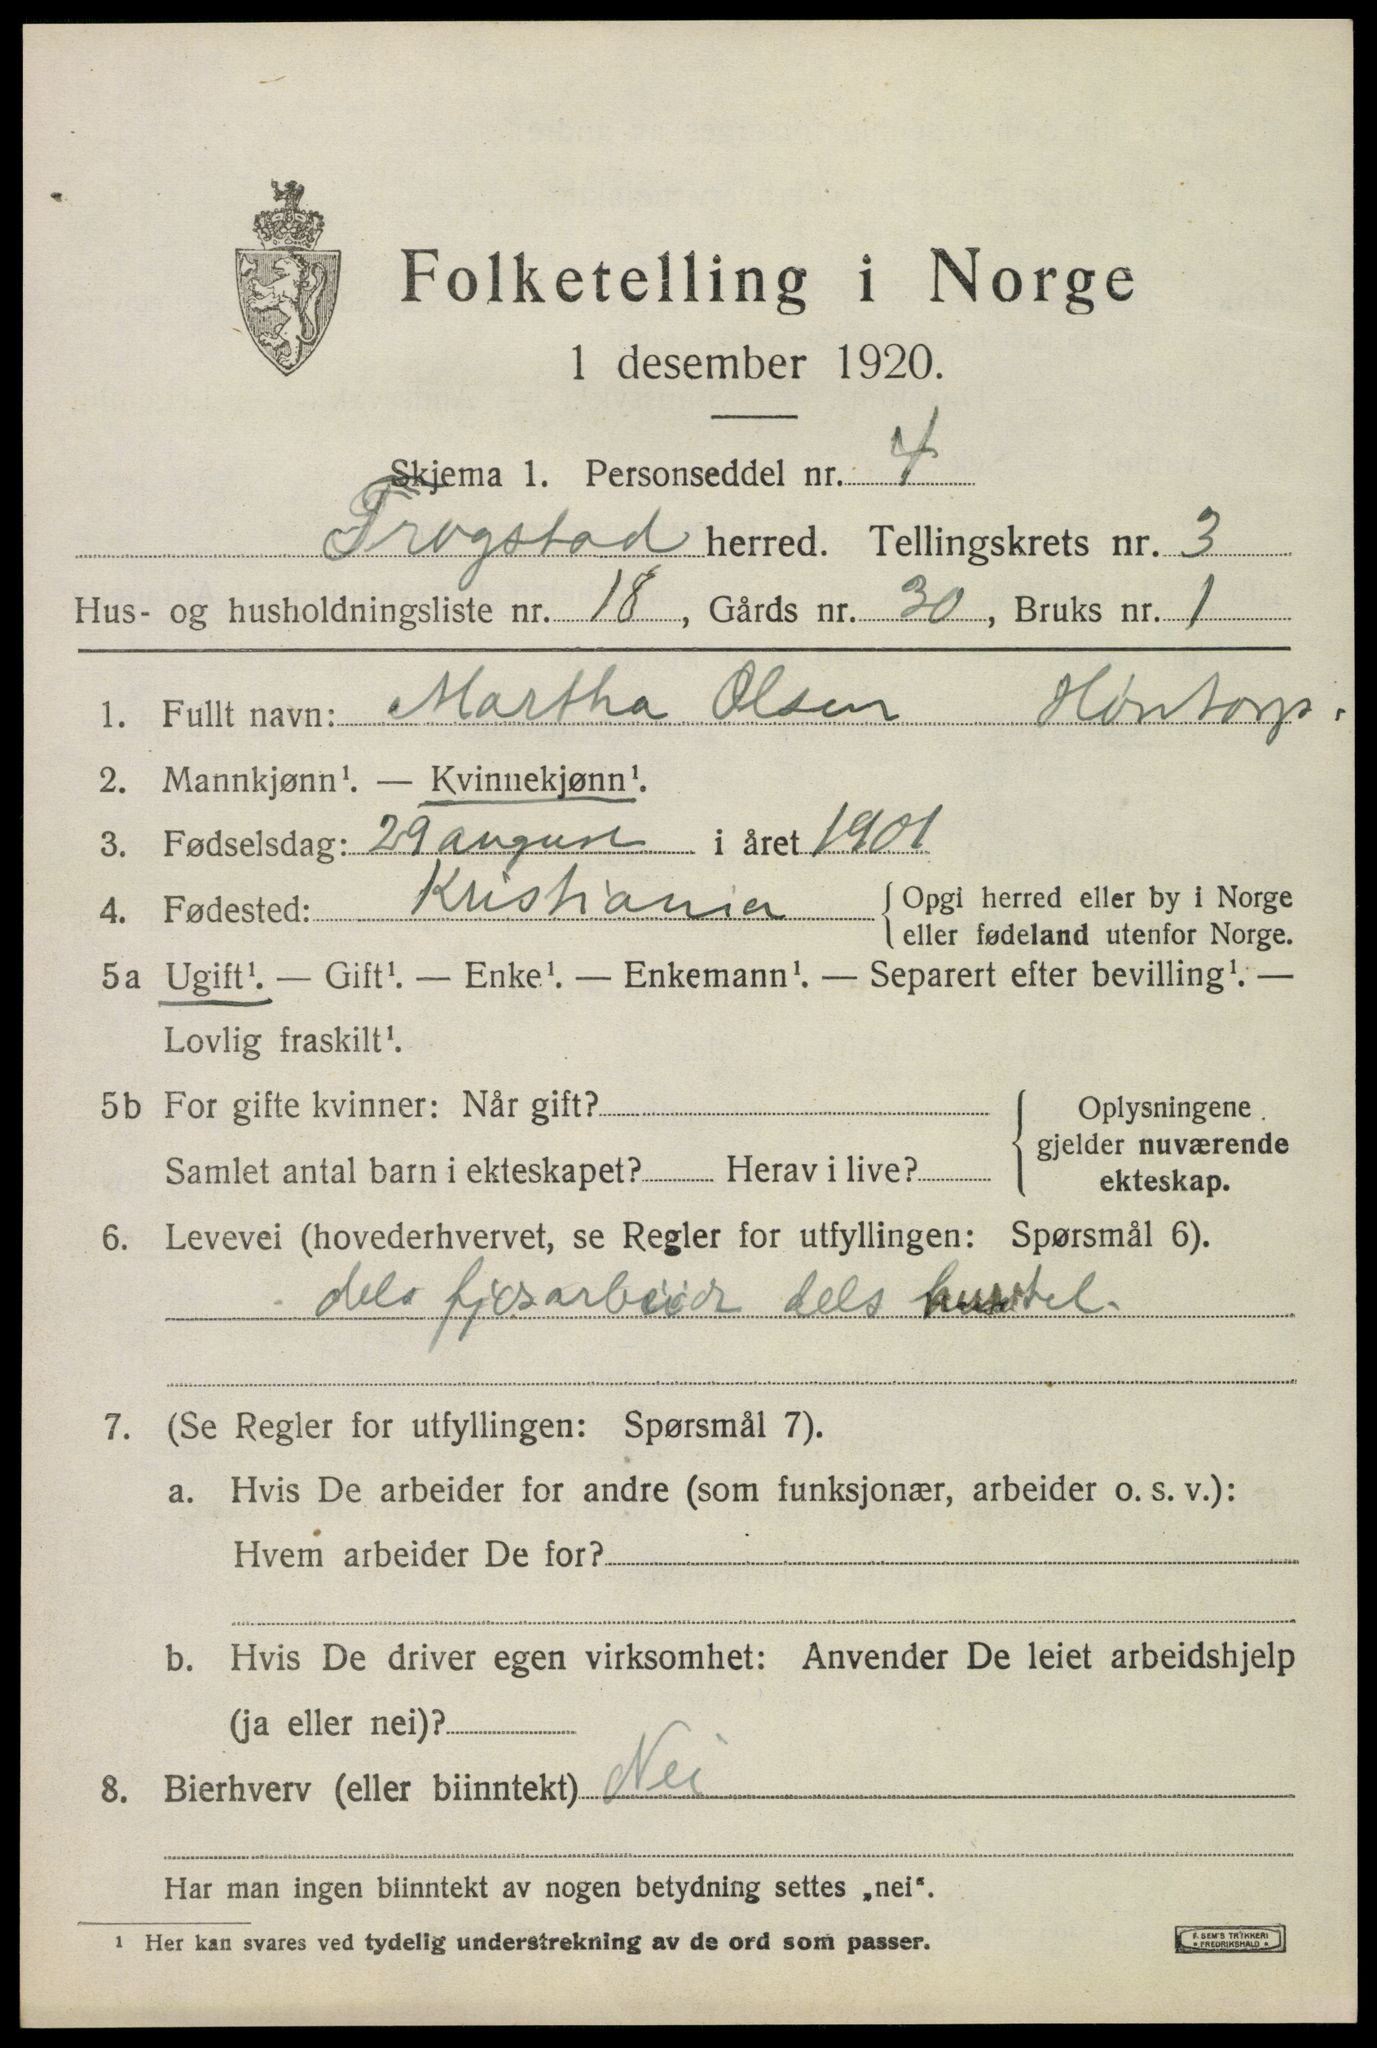 Folketelling i Norge
1 desember 1920.
Skjema 1. Personseddel nr. 4
Trogstad herred. Tellingskrets nr. 3
Hus- og husholdningsliste nr. 18, Gårds nr. 30, Bruks nr. 1
1. Fullt navn: Martha Olsen Høntorp.
2. Mannkjønn¹. — Kvinnekjønn¹.
3. Fødselsdag: 29 august i året 1901
4. Fødested: Kristiania { Opgi herred eller by i Norge
eller fødeland utenfor Norge.
5a Ugift¹. — Gift¹. — Enke¹. — Enkemann¹. — Separert efter bevilling¹. —
Lovlig fraskilt¹.
5b For gifte kvinner: Når gift? { Oplysningene
gjelder nuværende
Samlet antal barn i ekteskapet? Herav i live?
ekteskap.
6. Levevei (hovederhvervet, se Regler for utfyllingen: Spørsmål 6).
dels fjøsarbeider dels
7. (Se Regler for utfyllingen: Spørsmål 7).
a. Hvis De arbeider for andre (som funksjonær, arbeider o. s. v.):
Hvem arbeider De for?
b. Hvis De driver egen virksomhet: Anvender De leiet arbeidshjelp
(ja eller nei)?
8. Bierhverv (eller biinntekt) Nei
Har man ingen biinntekt av nogen betydning settes „nei“.
¹ Her kan svares ved tydelig understrekning av de ord som passer.
F. SEM'S TRYKKERI
• FREDRIKSHALD •